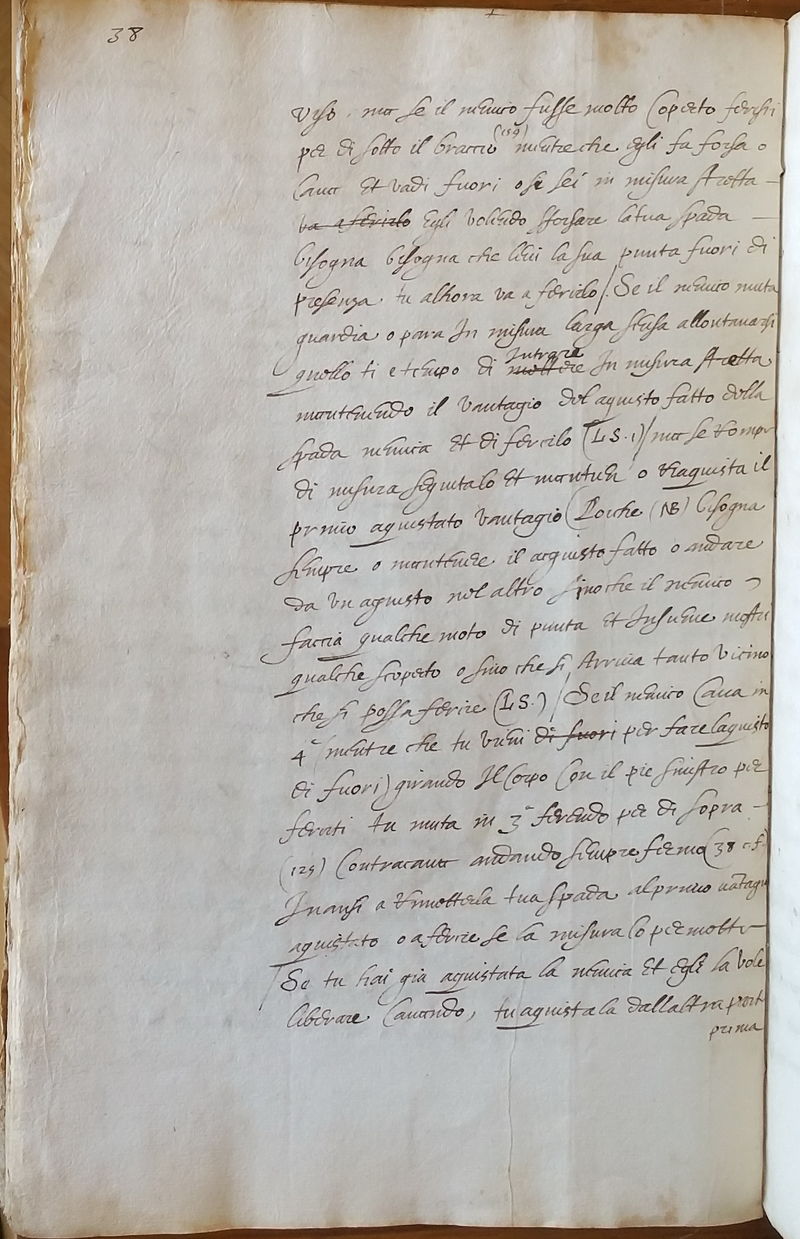 38
viso. ma se il nemico fusse molto coperto ferisri
per di sotto il braccio (159) mentre che egli fa forsa o
cava et vadi fuori o se sei in misura stretta –
va a ferirlo egli volendo sforsare la tua spada –
bisogna bisogna che levi la sua punta fuori di
presenza. tu alhora va a ferirlo /. Se il nemico muta
guardia o para In misura larga sensa allontanarsi
quello ti e tempo di mettere Intrare In misura stretta
mantenendo il vantagio del aquisto fatto della
spada nemica et di ferirlo (L S. 1) / ma se rompe
di misura seguitalo et mantien o riaquista il
primo aquistato vantagio (Perche (NB) bisogna
sempre o mantenere il acquisto fatto o andare
da un aquisto nel altro sino che il nemico
faccia qualche moto di punta et Insieme mostri
qualche scoperto o sino che si Arriva tanto vicino
che si possa ferire (L S.) / Se il nemico cava in
4ª (mentre che tu vieni di fuori per fare laquisto
di fuori) girando Il corpo con il pie sinistro per
ferirti tu muta in 3ª ferendo per di sopra –
(125) Contracava andando sempre fermo (38
Inansi a rimetter la tua spada al primo vātagio
aquistato o a ferire se la misura lo permette –
Se tu hai gia aquistata la nemica et egli la vole
liberare cavando, tu aquistala dall altra part
prima